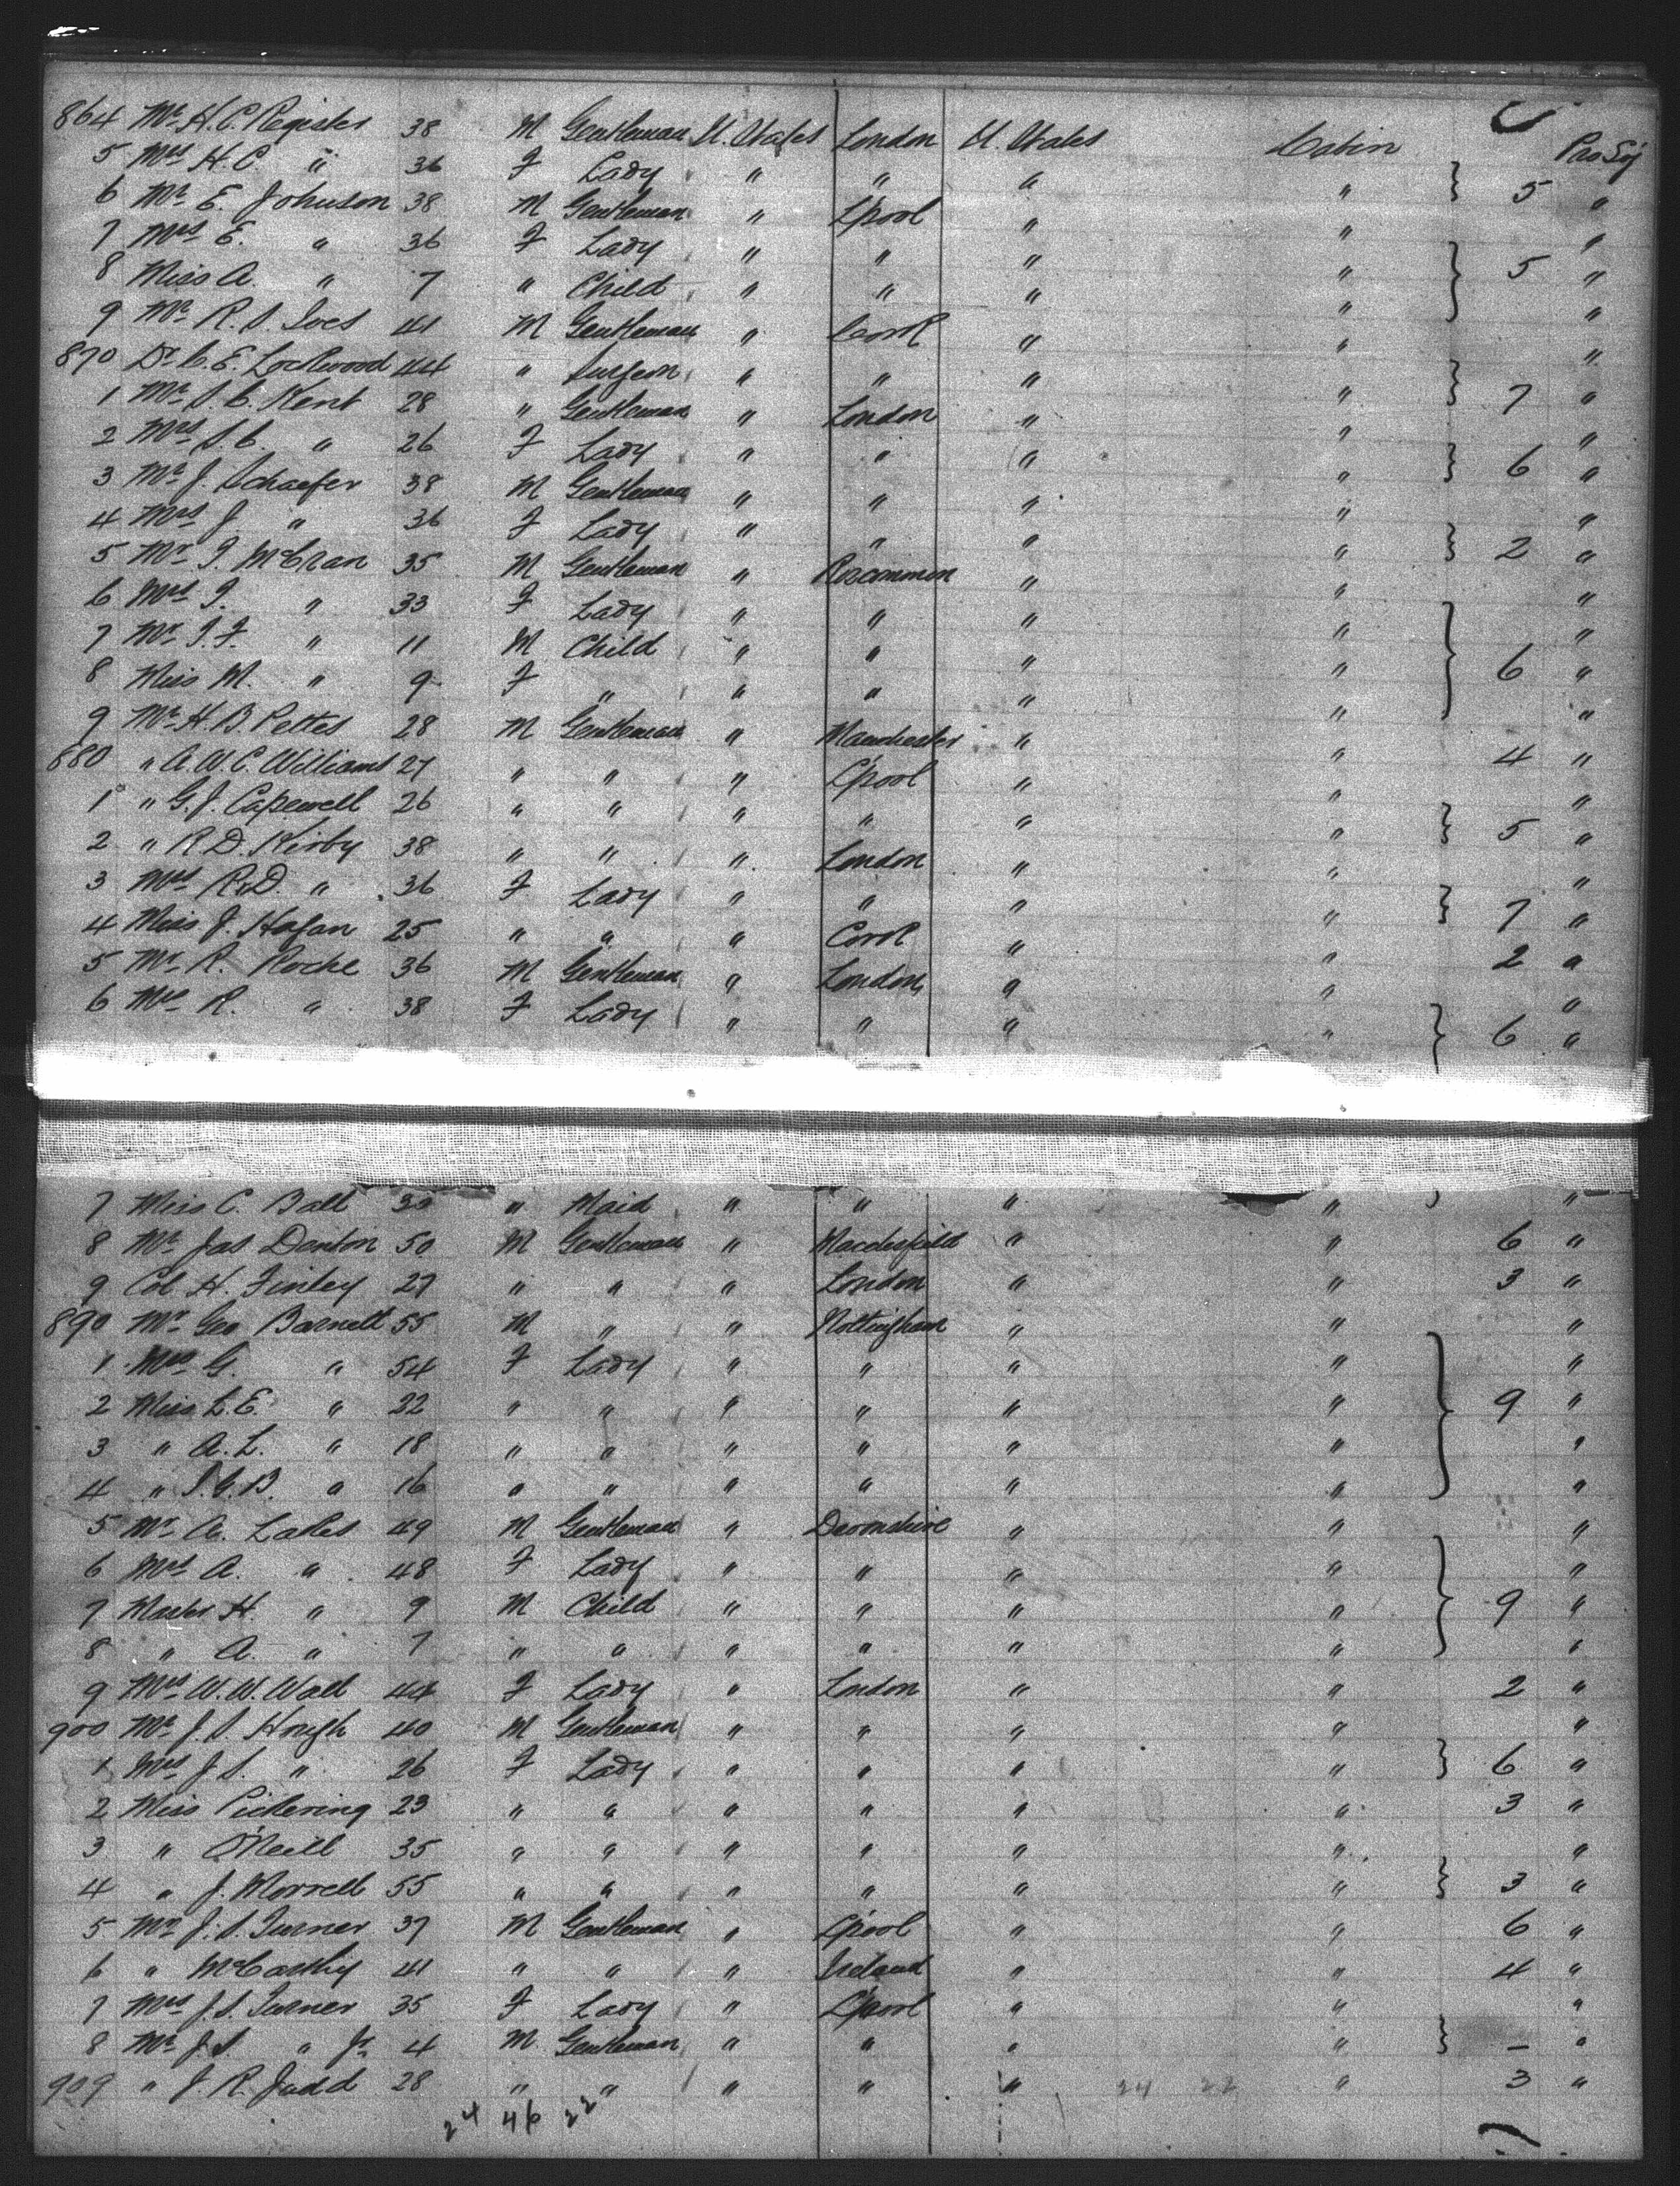 864 Mr H. C. Register 38 M Gentleman U. States London U. States Cabin Pro Soj
5 Mrs H. C. " 36 F Lady " " " " } 5 "
6 Mr E. Johnson 38 M Gentleman " L'pool " " "
7 Mrs E. " 36 F Lady " " " " "
8 Miss A. " 7 " Child " " " " } 5 "
9 Mr R. S. Ives 41 M Gentleman " Cork " " "
870 Dr C. E. Lockwood 44 " Surgeon " " " " } 7 "
1 Mr S. C. Kent 28 " Gentleman " London " " "
2 Mrs S. C. " 26 F Lady " " " " } 6 "
3 Mr J. Schaefer 38 M Gentleman " " " " "
4 Mrs J. " 36 F Lady " " " " } 2 "
5 Mr T. McCran 35 M Gentleman " Roscommon " " "
6 Mrs T. " 33 F Lady " " " " "
7 Mr T. F. " 11 M Child " " " " } 6 "
8 Miss M. " 9 F " " " " " "
9 Mr H. B. Pettes 28 M Gentleman " Manchester " " 4 "
880 " A. W. C. Williams 27 " " " L'pool " " "
1 " G. J. Capewell 26 " " " " " " } 5 "
2 " R. D. Kirby 38 " " " London " " "
3 Mrs R. D. " 36 F Lady " " " " } 7 "
4 Miss J. Hagan 25 " " " Cork " " 2 "
5 Mr R. Roche 36 M Gentleman " London " " "
6 Mrs R. " 38 F Lady " " " " } 6 "
7 Miss C. Ball 30 " Maid " " " " "
8 Mr Jas Danton 50 M Gentleman " Macclesfield " " 6 "
9 Col H. Finley 27 " " " London " " 3 "
890 Mr Geo Barnett 55 M " " Nottingham " " "
1 Mrs G. " 54 F Lady " " " " "
2 Miss L. E. " 22 " " " " " " } 9 "
3 " A. L. " 18 " " " " " " "
4 " S. G. B. " 16 " " " " " " "
5 Mr A. Lakes 49 M Gentleman " Devonshire " " "
6 Mrs A. " 48 F Lady " " " " "
7 Master H. " 9 M Child " " " " } 9 "
8 " A. " 7 " " " " " " "
9 Mrs W. W. Wall 44 F Lady " London " " 2 "
900 Mr J. S. Hough 40 M Gentleman " " " " "
1 Mrs J. S. " 26 F Lady " " " " } 6 "
2 Miss Pickering 23 " " " " " " 3 "
3 " O'Neill 35 " " " " " " "
4 " J. Morrell 55 " " " " " " } 3 "
5 Mr J. S. Turner 37 M Gentleman " L'pool " " 6 "
6 " McCarthy 41 " " " Ireland " " 4 "
7 Mrs J. S. Turner 35 F Lady " L'pool " " "
8 Mr J. S. " Jr 4 M Gentleman " " " " } – "
909 " J. R. Judd 28 " " " " " 24 22 " 3 "
24 46 22